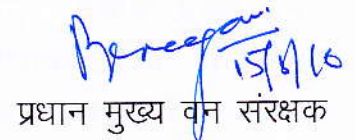 15/6/10
प्रधान मुख्य वन संरक्षक